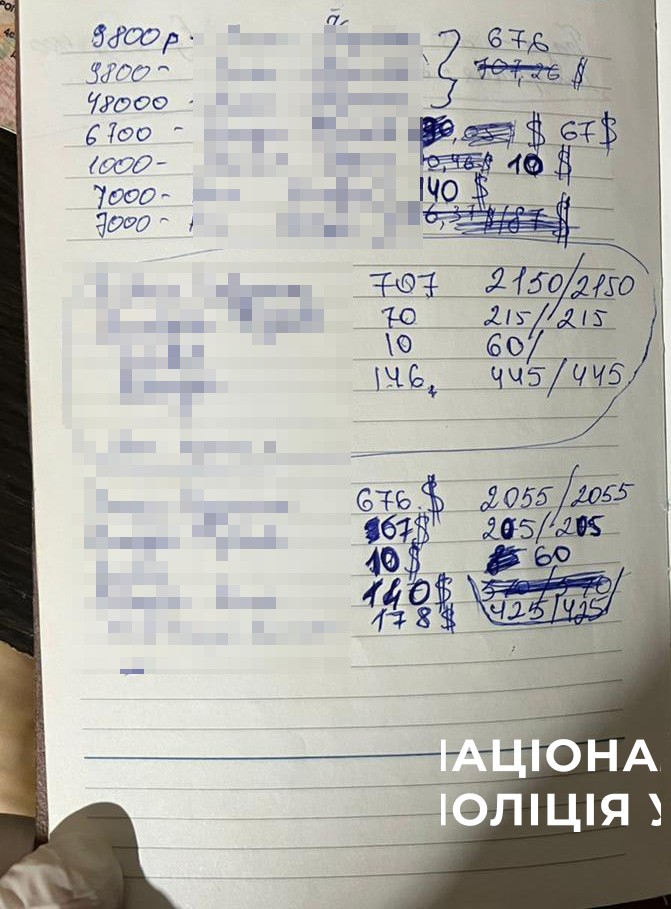 9800р. 676
9800- 707,26 $
48000
6700 - $ 67$
1000- 10 $
7000- 140 $
7000- $
707 2150/2150
70 215/215
10 60/
146. 445/445
676 $ 2055/2055
67$ 205/205
10$ 60
140$ 570/570/
178$ 425/425
ІАЦІОНА
ІОЛІЦІЯ У